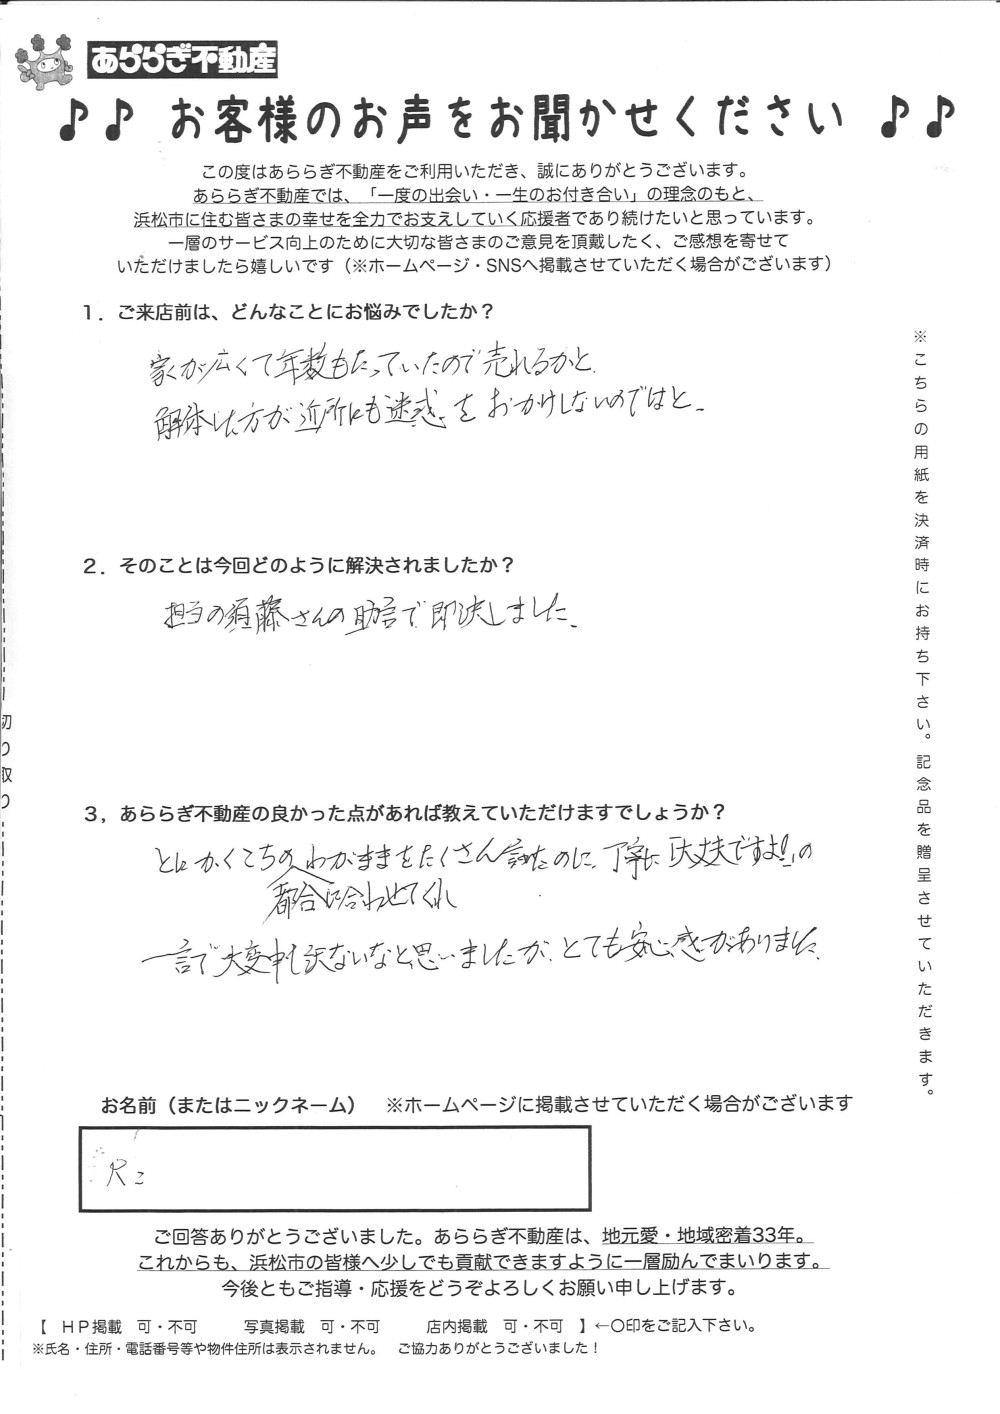 あららぎ不動産
♪♪ お客様のお声をお聞かせください ♪♪
この度はあららぎ不動産をご利用いただき、誠にありがとうございます。
あららぎ不動産では、「一度の出会い・一生のお付き合い」の理念のもと、
浜松市に住む皆さまの幸せを全力でお支えしていく応援者であり続けたいと思っています。
一層のサービス向上のために大切な皆さまのご意見を頂戴したく、ご感想を寄せて
いただけましたら嬉しいです（※ホームページ・SNSへ掲載させていただく場合がございます）
１．ご来店前は、どんなことにお悩みでしたか？
家が広くて年数もたっていたので売れるかと、
解体した方が近所にも迷惑をおかけしないのではと。
２．そのことは今回どのように解決されましたか？
担当の須藤さんの助言で即決しました。
３，あららぎ不動産の良かった点があれば教えていただけますでしょうか？
とにかくこちらのわがままをたくさん言ったのに、丁寧に「大丈夫ですよ!」の
都合に合わせてくれ
一言で大変申し訳ないなと思いましたが、とても安心感がありました。
お名前（またはニックネーム）　※ホームページに掲載させていただく場合がございます
Rこ
ご回答ありがとうございました。あららぎ不動産は、地元愛・地域密着33年。
これからも、浜松市の皆様へ少しでも貢献できますように一層励んでまいります。
今後ともご指導・応援をどうぞよろしくお願い申し上げます。
【　ＨＰ掲載　可・不可　　　写真掲載　可・不可　　　店内掲載　可・不可　】←〇印をご記入下さい。
※氏名・住所・電話番号等や物件住所は表示されません。　ご協力ありがとうございました！
※こちらの用紙を決済時にお持ち下さい。記念品を贈呈させていただきます。
切り取り